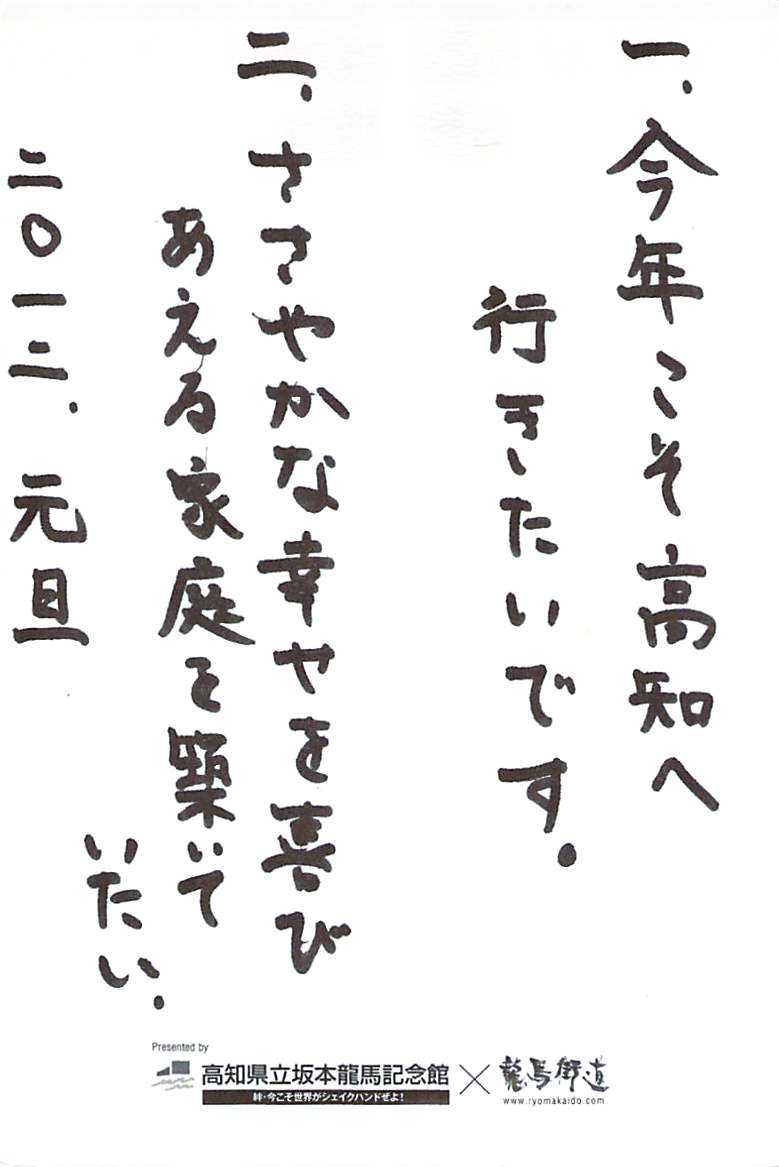 一、今年こそ高知へ
行きたいです。
二、ささやかな幸やを喜び
あえる家庭を築いて
いたい。
二〇一二、元旦
Presented by
高知県立坂本龍馬記念館
絆・今こそ世界がシェイクハンドぜよ!
×
龍馬街道
www.ryomakaido.com